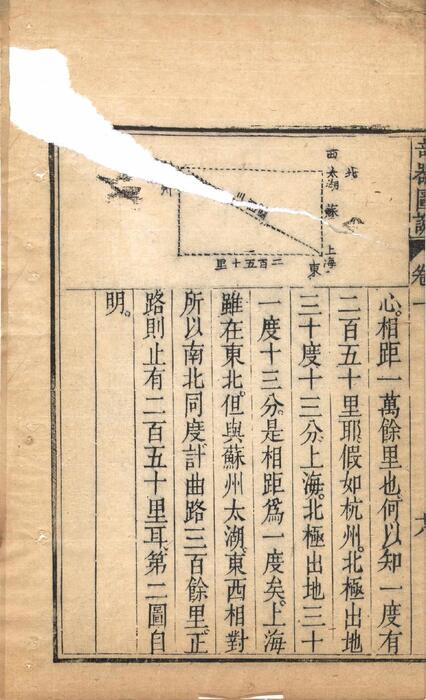 奇器圖說
卷一
六
北
西 太湖 蘇
上海
東
二百五十里
三百
州
心。相距一萬餘里也。何以知一度有
二百五十里耶。假如杭州。北極出地
三十度十三分。上海。北極出地三十
一度十三分。是相距爲一度矣。上海
雖在東北。但與蘇州太湖。東西相對
所以南北同度。計曲路三百餘里。正
路則止有二百五十里耳。第二圖自
明。